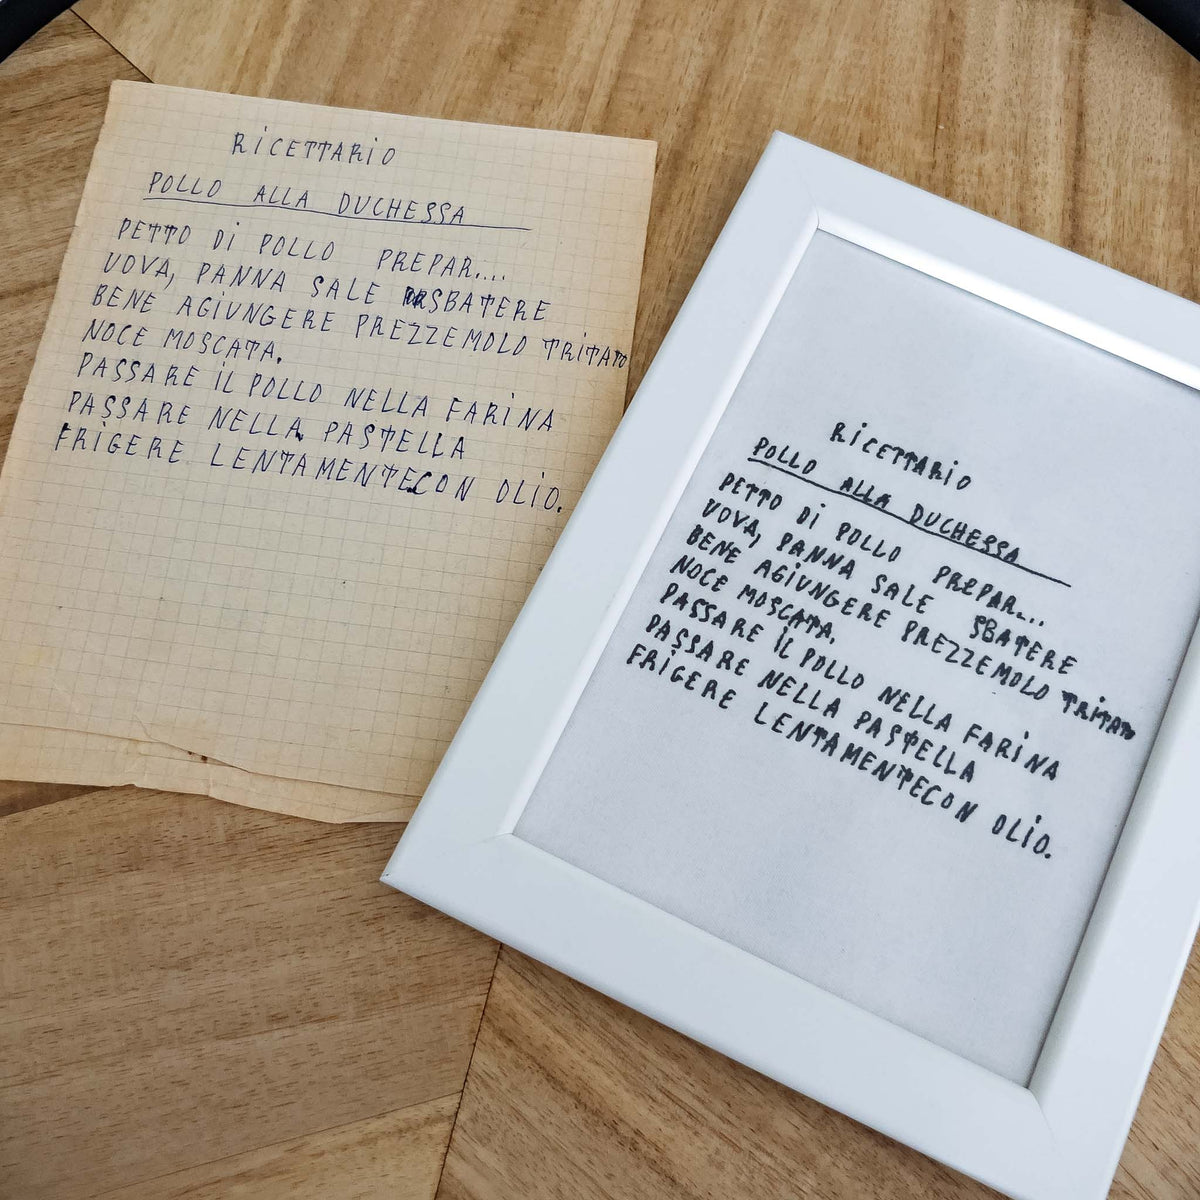 RICETTARIO
POLLO ALLA DUCHESSA
PETTO DI POLLO PREPAR....
UOVA, PANNA SALE SBATERE
BENE AGIUNGERE PREZZEMOLO TRITATO
NOCE MOSCATA.
PASSARE IL POLLO NELLA FARINA
PASSARE NELLA PASTELLA
FRIGERE LENTAMENTE CON OLIO.
RICETTARIO
POLLO ALLA DUCHESSA
PETTO DI POLLO PREPAR...
UOVA, PANNA SALE SBATERE
BENE AGIUNGERE PREZZEMOLO TRITATO
NOCE MOSCATA.
PASSARE IL POLLO NELLA FARINA
PASSARE NELLA PASTELLA
FRIGERE LENTAMENTE CON OLIO.